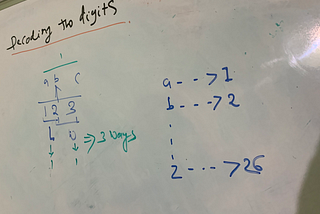 Decoding the digits
1
a b c
1 2 3
=> 3 ways
1 1
a - - -> 1
b - - - -> 2
z - - - -> 26